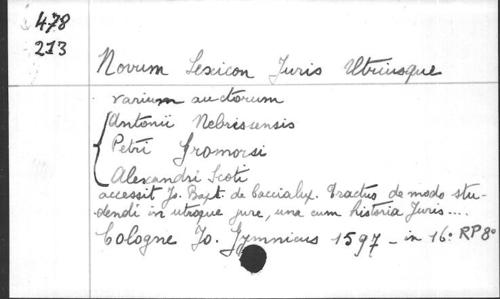 478
213
Novum Lexicon Juris Utriusque
varium auctorum
Antonii Nebrissensis
Petri Gromorsi
Alexandri Scoti
accessit Jo. Bapt. de Caccialup. Tractus de modo stu-
dendi in utroque jure, una cum historia Juris....
Cologne Jo. Gymnicus 1597 - in 16° RP 8°